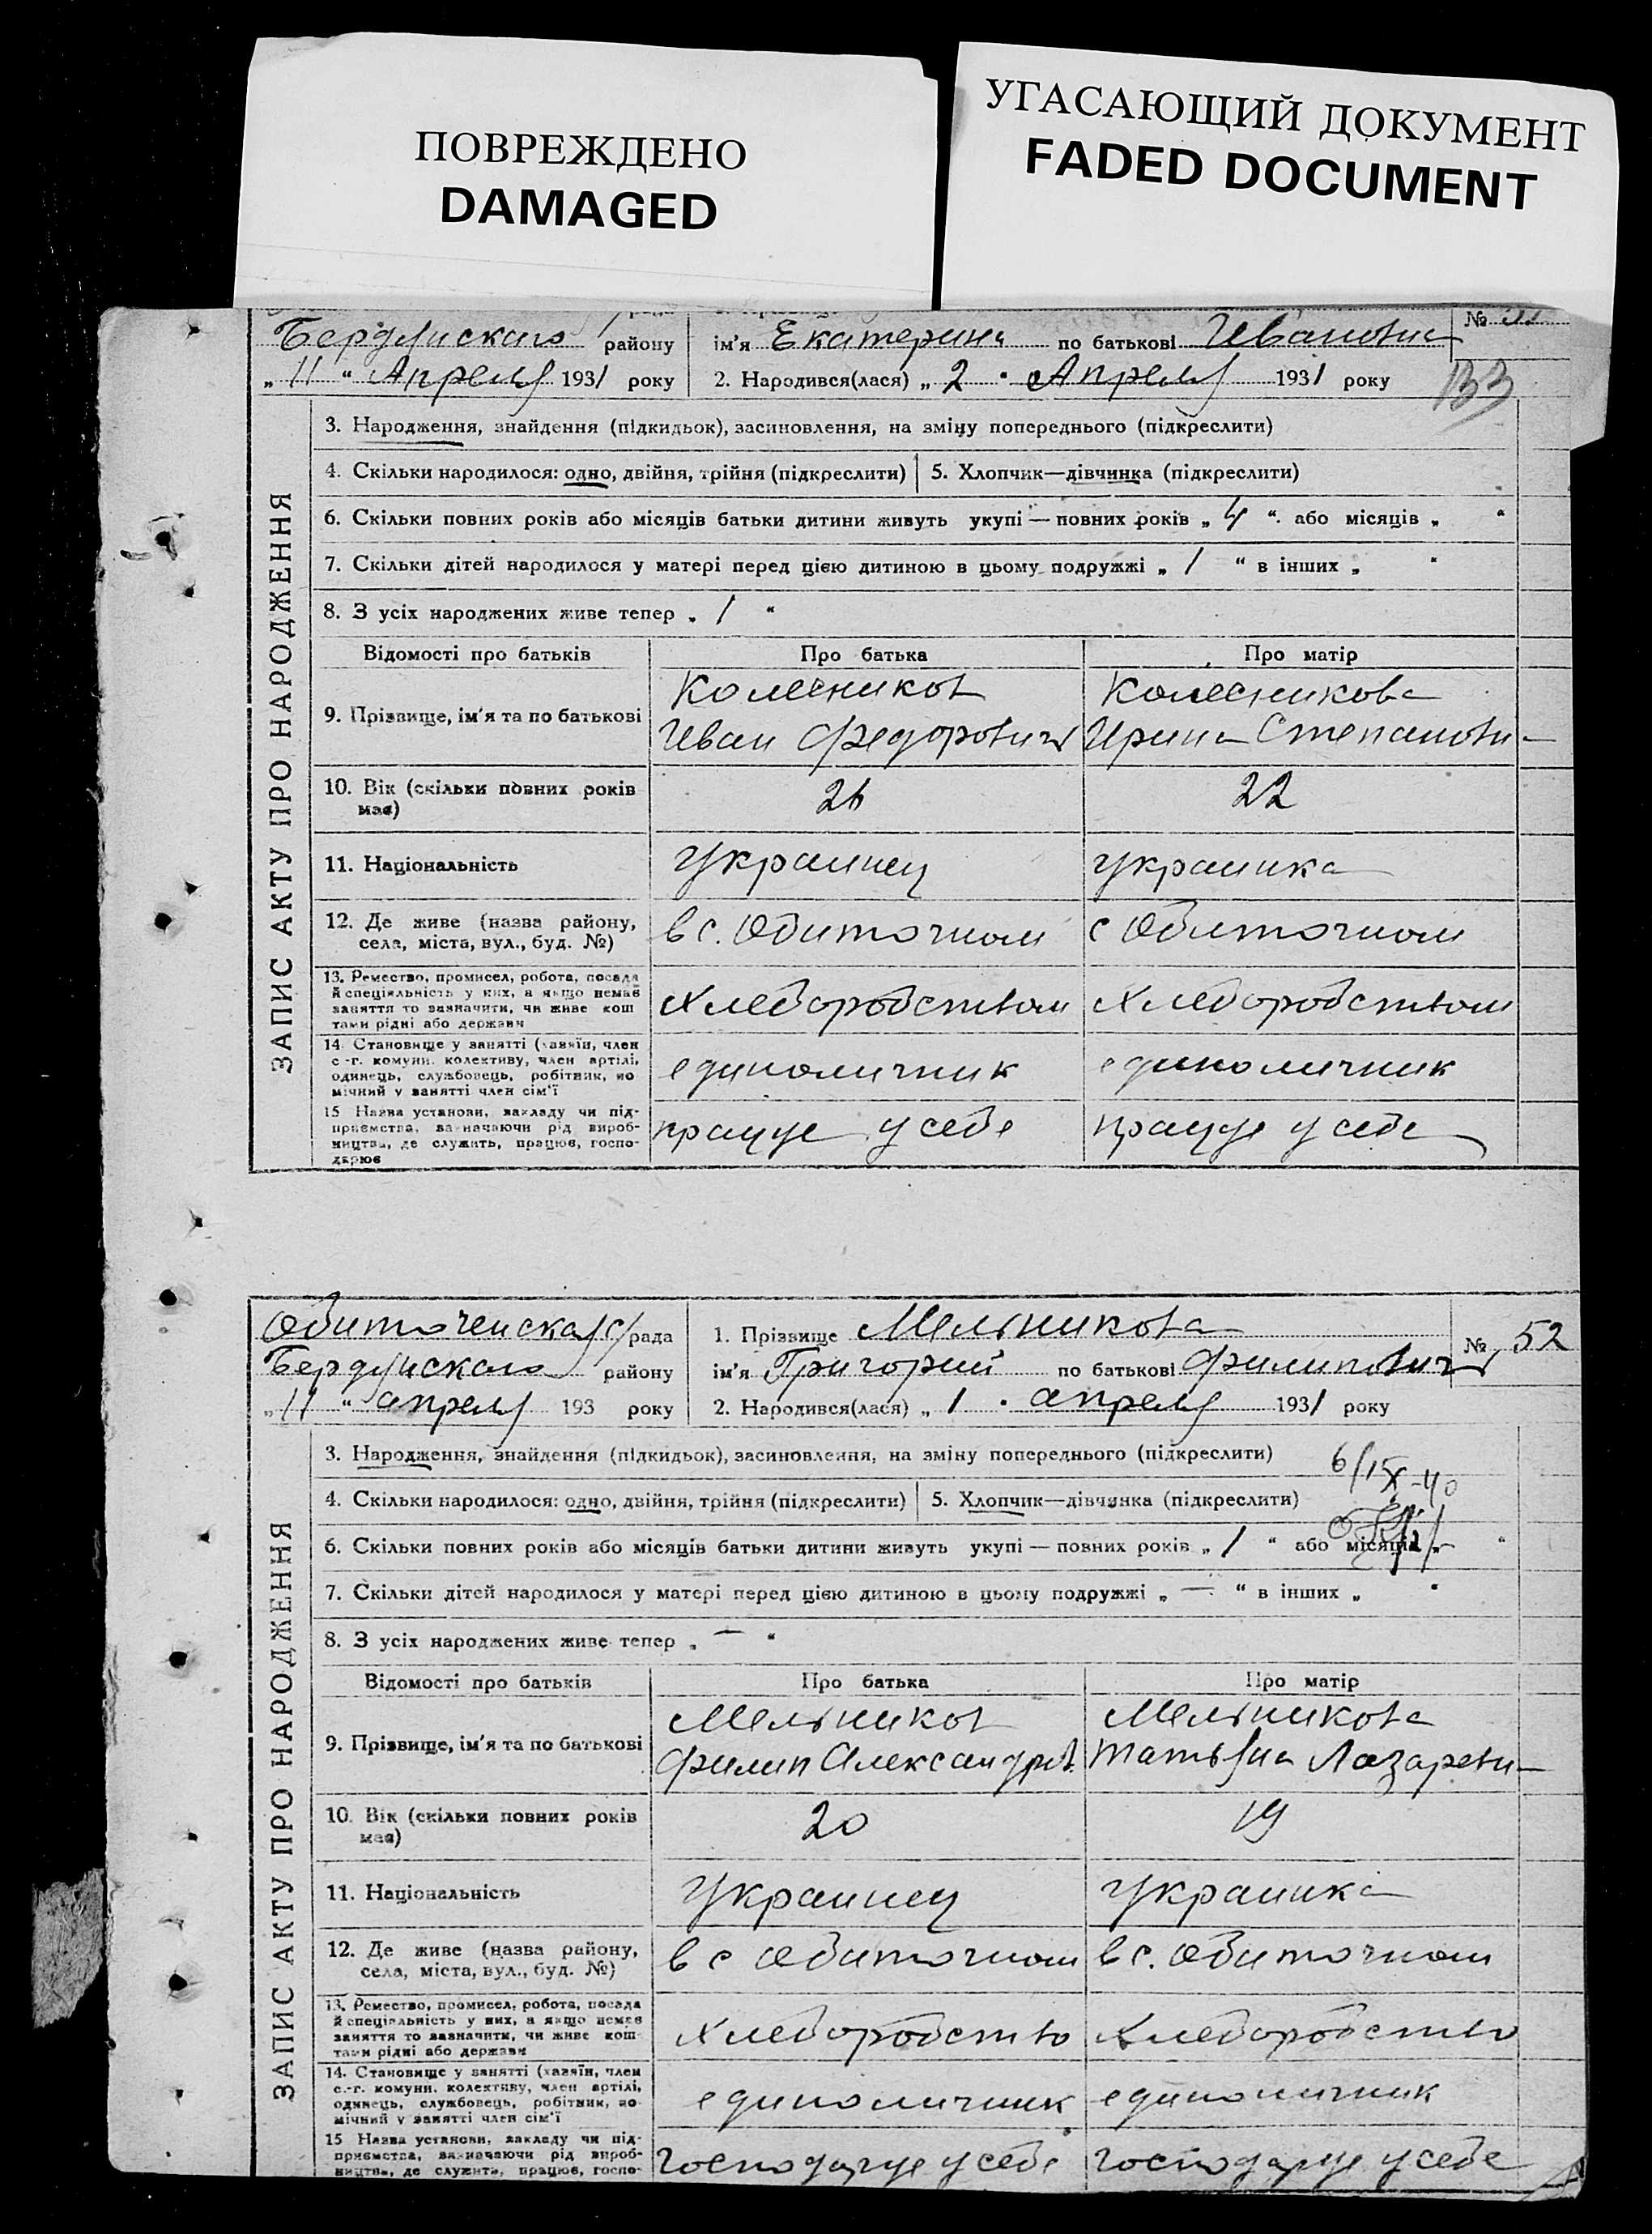 ПОВРЕЖДЕНО
DAMAGED
УГАСАЮЩИЙ ДОКУМЕНТ
FADED DOCUMENT
Бердянского району
„ 11 “ Апреля 1931 року
ім'я Екатерина по батькові Ивановна
№
2. Народився(лася) „ 2 “ Апреля 1931 року
133
ЗАПИС АКТУ ПРО НАРОДЖЕННЯ
3. Народження, знайдення (підкидьок), засиновлення, на зміну попереднього (підкреслити)
4. Скільки народилося: одно, двійня, трійня (підкреслити)
5. Хлопчик—дівчинка (підкреслити)
6. Скільки повних років або місяців батьки дитини живуть укупі — повних років „ 4 “. або місяців „ “
7. Скільки дітей народилося у матері перед цією дитиною в цьому подружжі „ 1 “ в інших „ “
8. З усіх народжених живе тепер „ 1 “
Відомості про батьків Про батька Про матір
9. Прізвище, ім'я та по батькові
Колесников
Иван Федорович
Колесникова
Ирина Степановна
10. Вік (скільки повних років
має)
26
22
11. Національність
Украинец
украинка
12. Де живе (назва району,
села, міста, вул., буд. №)
в с. Обиточном
с Обиточном
13. Ремество, промисел, робота, посада
й спеціяльність у них, а якщо немає
заняття то зазначити, чи живе кош
тами рідні або держави
Хлеборобством
Хлеборобством
14. Становище у занятті (хазяїн, член
с.-г. комуни, колективу, член артілі,
одинець, службовець, робітник, по
мічний у занятті член сім'ї
единоличник
единоличник
15 Назва установи, закладу чи під-
приємства, зазначаючи рід вироб-
ництва, де служить, працює, госпо-
дарює
працуе у себе
працуе у себе
Обиточенская с/рада
Бердянского району
„ 11 “ апреля 193 року
1. Прізвище Мельникова
ім'я Григорий по батькові Филипович
№ 52
2. Народився(лася) „ 1 “ апреля 1931 року
ЗАПИС АКТУ ПРО НАРОДЖЕННЯ
3. Народження, знайдення (підкидьок), засиновлення, на зміну попереднього (підкреслити)
6/IX-40
4. Скільки народилося: одно, двійня, трійня (підкреслити)
5. Хлопчик—дівчинка (підкреслити)
6. Скільки повних років або місяців батьки дитини живуть укупі — повних років „ 1 “ або місяців „ “
7. Скільки дітей народилося у матері перед цією дитиною в цьому подружжі „ — “ в інших „ “
8. З усіх народжених живе тепер „ — “
Відомості про батьків Про батька Про матір
9. Прізвище, ім'я та по батькові
Мельников
Филип Александров.
Мельникова
Татьяна Лазаревна
10. Вік (скільки повних років
має)
20
19
11. Національність
Украинец
Украинка
12. Де живе (назва району,
села, міста, вул., буд. №)
в с Обиточном
в с. Обиточном
13. Ремество, промисел, робота, посада
й спеціяльність у них, а якщо немає
заняття то зазначити, чи живе кош
тами рідні або держави
Хлеборобство
Хлеборобство
14. Становище у занятті (хазяїн, член
с.-г. комуни, колективу, член артілі,
одинець, службовець, робітник, по
мічний у занятті член сім'ї
единоличник
единоличник
15 Назва установи, закладу чи під-
приємства, зазначаючи рід вироб-
ництва, де служить, працює, госпо-
господаруе у себе
господаруе у себе